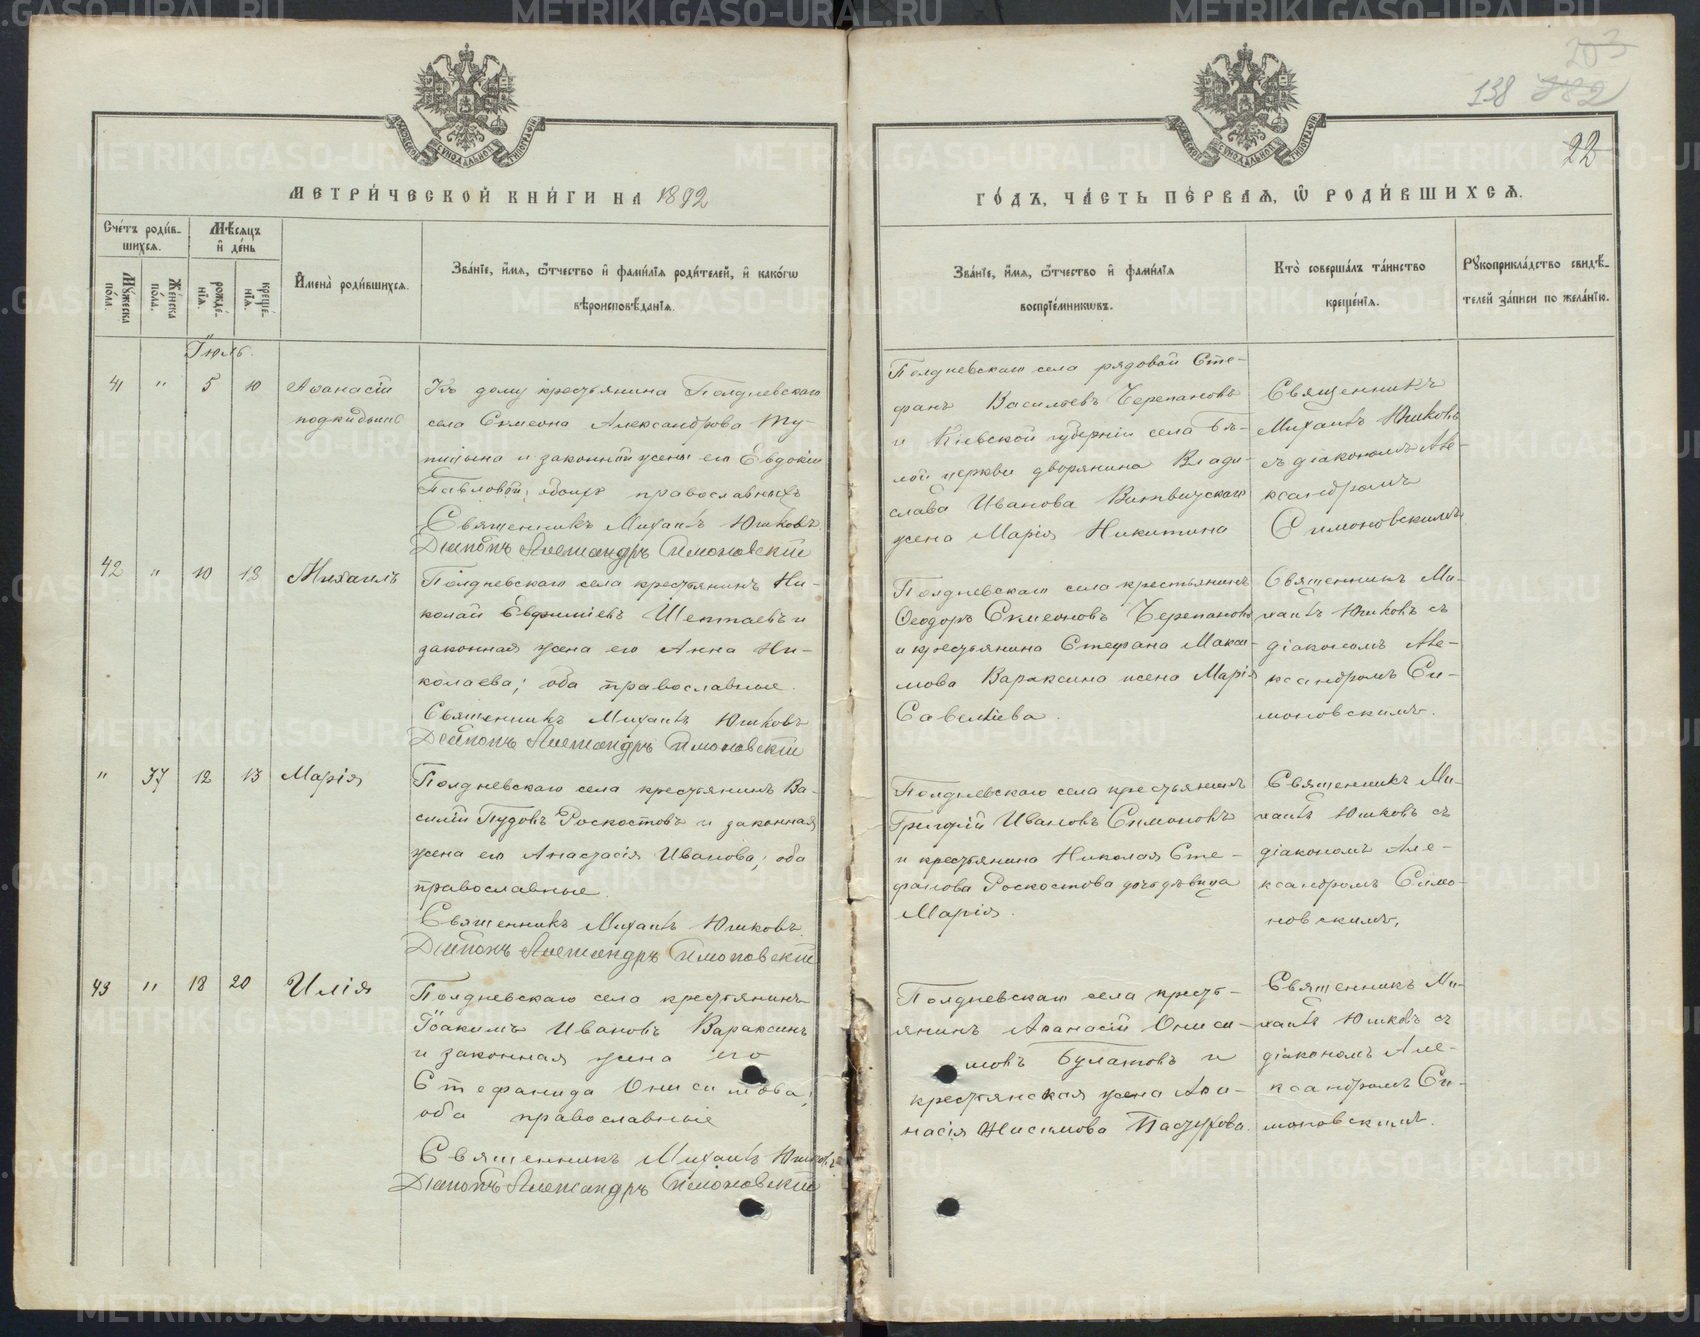 138 382
22
МЕТРИ́ЧЕСКОЙ КНИ́ГИ НА 1892
ГО́ДЪ, ЧА́СТЬ ПЕ́РВАЯ, Ѡ РОДИ́ВШИХСЯ.
Сче́тъ роди́в-
шихся.
Мѣ́сяцъ
и де́нь
Му́жеска по́ла.
Же́нска по́ла.
рожде́-нія.
креще́-нія.
Имена̀ роди́вшихся.
Зва́ніе, имя, ѻтчество и фами́лія роди́телей, и како́гѡ
вѣроисповѣ́данія.
Зва́ніе, имя, ѻтчество и фами́лія
воспріе́мникѡвъ.
Кто̀ соверша́лъ та́инство
креще́нія.
Рꙋкоприкла́дство свидѣ́-
телей за́писи по жела́нію.
Іюль.
41 " 5 10 Аѳанасій
подкидышъ
Къ дому крестьянина Полдневскаго
села Симеона Александрова Ту-
пицына и законной жены его Евдокіи
Павловой, обоихъ православныхъ
Священникъ Михаилъ Юшковъ
Діаконъ Александръ Симоновскій
Полдневскаго села рядовой Сте-
фанъ Васильевъ Черепановъ
и Кіевской губерніи села Бѣ-
лой церкви дворянина Влади-
слава Иванова Витвицкаго
жена Марія Никитина
Священникъ
Михаилъ Юшковъ
съ діакономъ Але-
ксандромъ
Симоновскимъ
42 " 10 13 Михаилъ
Полдневскаго села крестьянинъ Ни-
колай Евфиміевъ Шептаевъ и
законная жена его Анна Ни-
колаева; оба православные.
Священникъ Михаилъ Юшковъ
Діаконъ Александръ Симоновскій
Полдневскаго села крестьянинъ
Ѳеодоръ Симеоновъ Черепановъ
и крестьянина Стефана Макси-
мова Вараксина жена Марія
Савельева.
Священникъ Ми-
хаилъ Юшковъ съ
діакономъ Але-
ксандромъ Си-
моновскимъ.
" 37 12 13 Марія
Полдневскаго села крестьянинъ Ва-
силій Пудовъ Роскостовъ и законная
жена его Анастасія Иванова; оба
православные.
Священникъ Михаилъ Юшковъ.
Діаконъ Александръ Симоновскій
Полдневскаго села крестьянинъ
Григорій Ивановъ Симоновъ
и крестьянина Николая Сте-
фанова Роскостова дочь дѣвица
Марія.
Священникъ Ми-
хаилъ Юшковъ съ
діакономъ Але-
ксандромъ Симо-
новскимъ.
43 " 18 20 Илія
Полдневскаго села крестьянинъ
Іоакимъ Ивановъ Вараксинъ
и законная жена его
Стефанида Онисимова;
оба православные
Священникъ Михаилъ Юшковъ
Діаконъ Александръ Симоновскій
Полдневскаго села кресть-
янинъ Аѳанасій Ониси-
мовъ Булатовъ и
крестьянская жена Ана-
насія Онисимова Пастухова.
Священникъ Ми-
хаилъ Юшковъ съ
діакономъ Але-
ксандромъ Си-
моновскимъ.